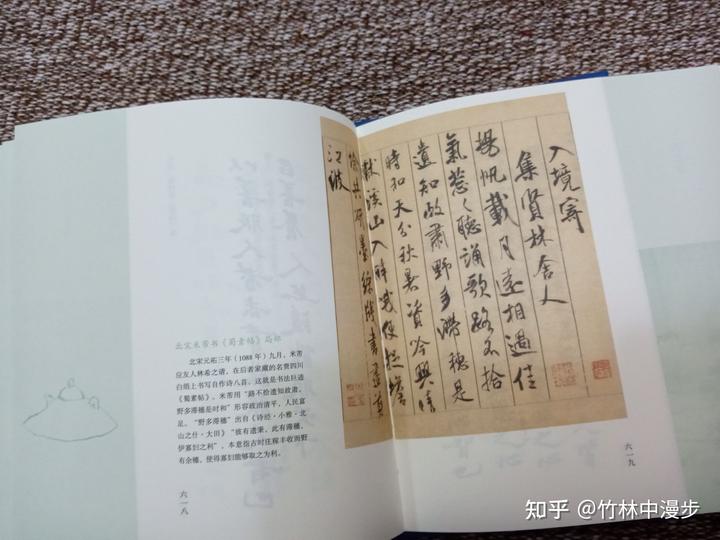 北宋米芾书《蜀素帖》局部
北宋元祐三年（1088年）九月，米芾
应友人林希之请，在后者家藏的名贵四川
白绢上书写自作诗八首。这就是书法巨迹
《蜀素帖》。米芾用“路不拾遗知政肃，
野多滞穗是时和”形容政治清平，人民富
足。“野多滞穗”出自《诗经·小雅·北
山之什·大田》“彼有遗秉，此有滞穗，
伊寡妇之利”，本意指古时庄稼丰收而野
有余穗，使得寡妇能够取之为利。
六一八
入境寄
集賢林舍人
揚帆載月遠相過佳
氣葱〻聽誦歌路不拾
遺知政肅野多滯穗是
時和天分秋暑資吟興晴
獻溪山入醉哦便捉蟾
蜍共研墨綵牋書盡剪
江波
六一九
知乎 @竹林中漫步